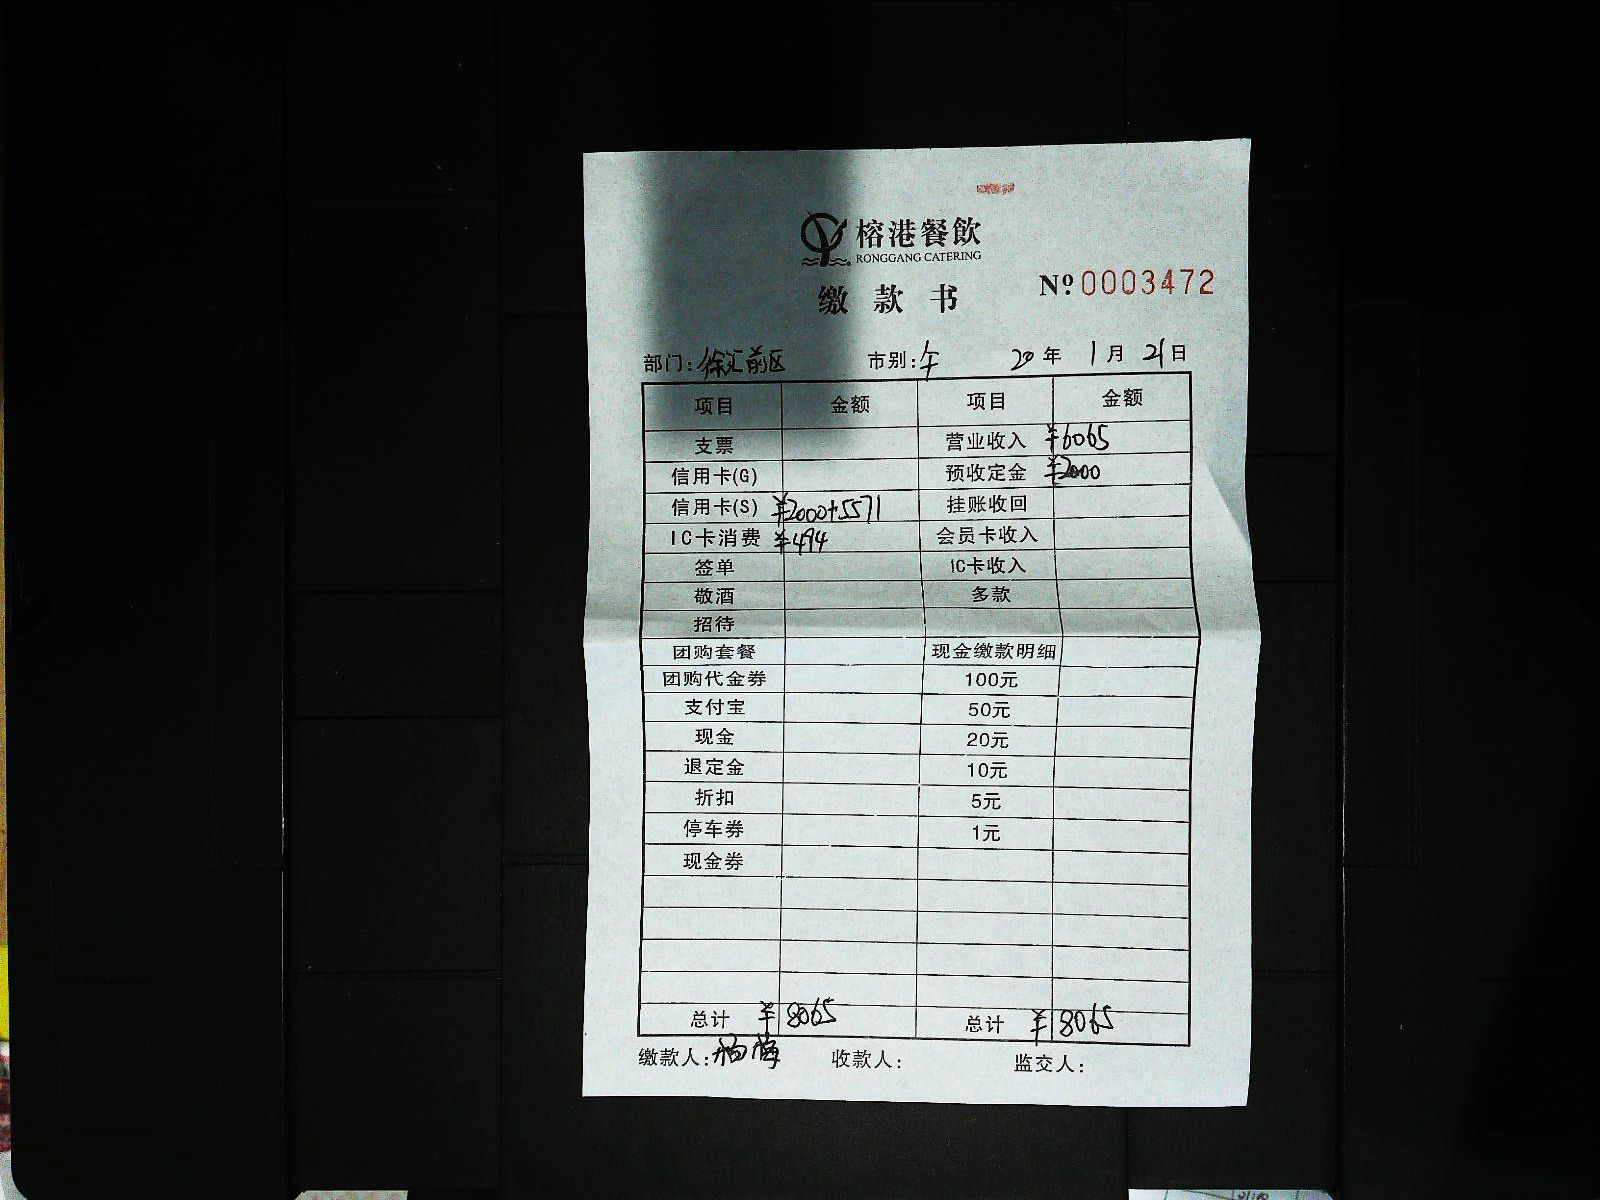 榕港餐飲
RONGGANG CATERING
缴款书
Nº 0003472
部门: 徐汇前区 市别: 午 20年 1月 21日
项目 金额 项目 金额
支票 营业收入 ¥6065
信用卡(G) 预收定金 ¥2000
信用卡(S) ¥2000+5571 挂账收回
IC卡消费 ¥494 会员卡收入
签单 IC卡收入
敬酒 多款
招待
团购套餐 现金缴款明细
团购代金券 100元
支付宝 50元
现金 20元
退定金 10元
折扣 5元
停车券 1元
现金券
总计 ¥8065 总计 ¥8065
缴款人: 杨梅 收款人: 监交人: